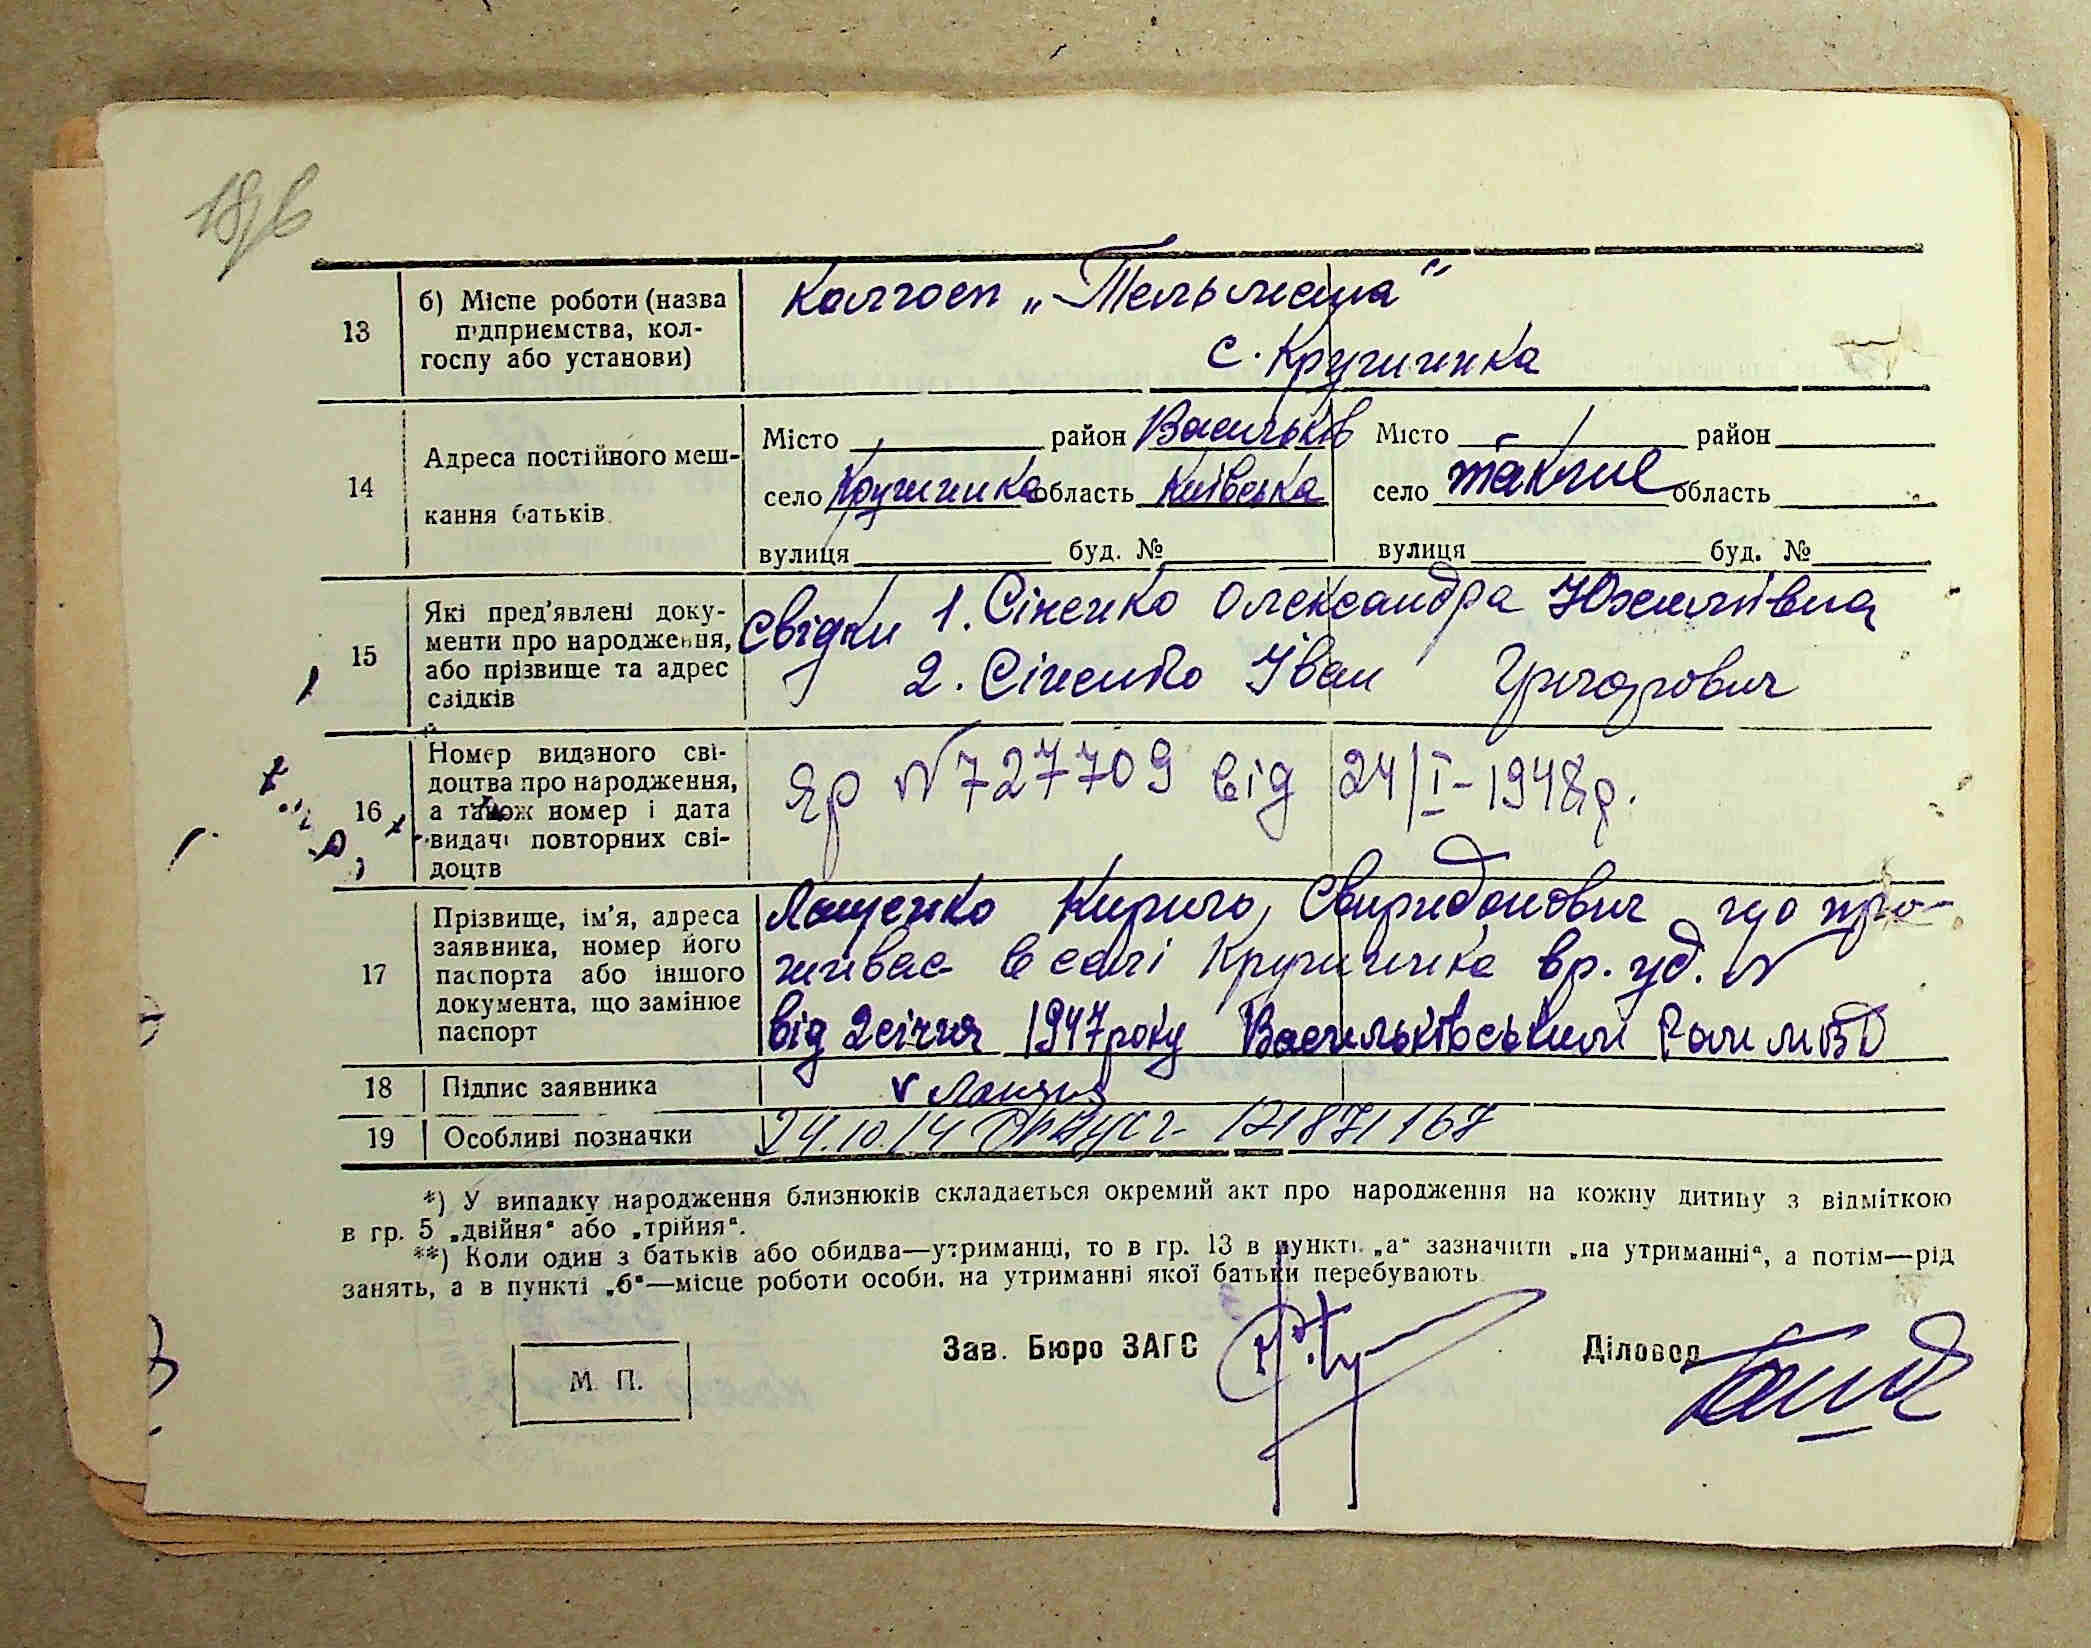 18зв
13
б) Місце роботи (назва підприємства, колгоспу або установи)
Колгосп „Тельмана“
с. Кручинка
14
Адреса постійного мешкання батьків
Місто район Васильків Місто район
село Кручинка область Київська село также область
вулиця буд. № вулиця буд. №
15
Які пред'явлені документи про народження, або прізвище та адрес свідків
Свідки 1. Сіненко Олександра Юхимівна
2. Сіненко Іван Григорович
16
Номер виданого свідоцтва про народження, а також номер і дата видачі повторних свідоцтв
ЯР № 727709 від 24/I-1948р.
17
Прізвище, ім'я, адреса заявника, номер його паспорта або іншого документа, що замінює паспорт
Лащенко Кирило Свиридонович що про-
живає в селі Кручинка вр. уд. №
від 2 січня 1947 року Васильківським РОМ МВД
18
Підпис заявника
v
19
Особливі позначки
24.10.14
*) У випадку народження близнюків складається окремий акт про народження на кожну дитину з відміткою
в гр. 5 „двійня“ або „трійня“.
**) Коли один з батьків або обидва—утриманці, то в гр. 13 в пункті „а“ зазначити „на утриманні“, а потім—рід
занять, а в пункті „б“—місце роботи особи, на утриманні якої батьки перебувають
Зав. Бюро ЗАГС Діловод
М. П.